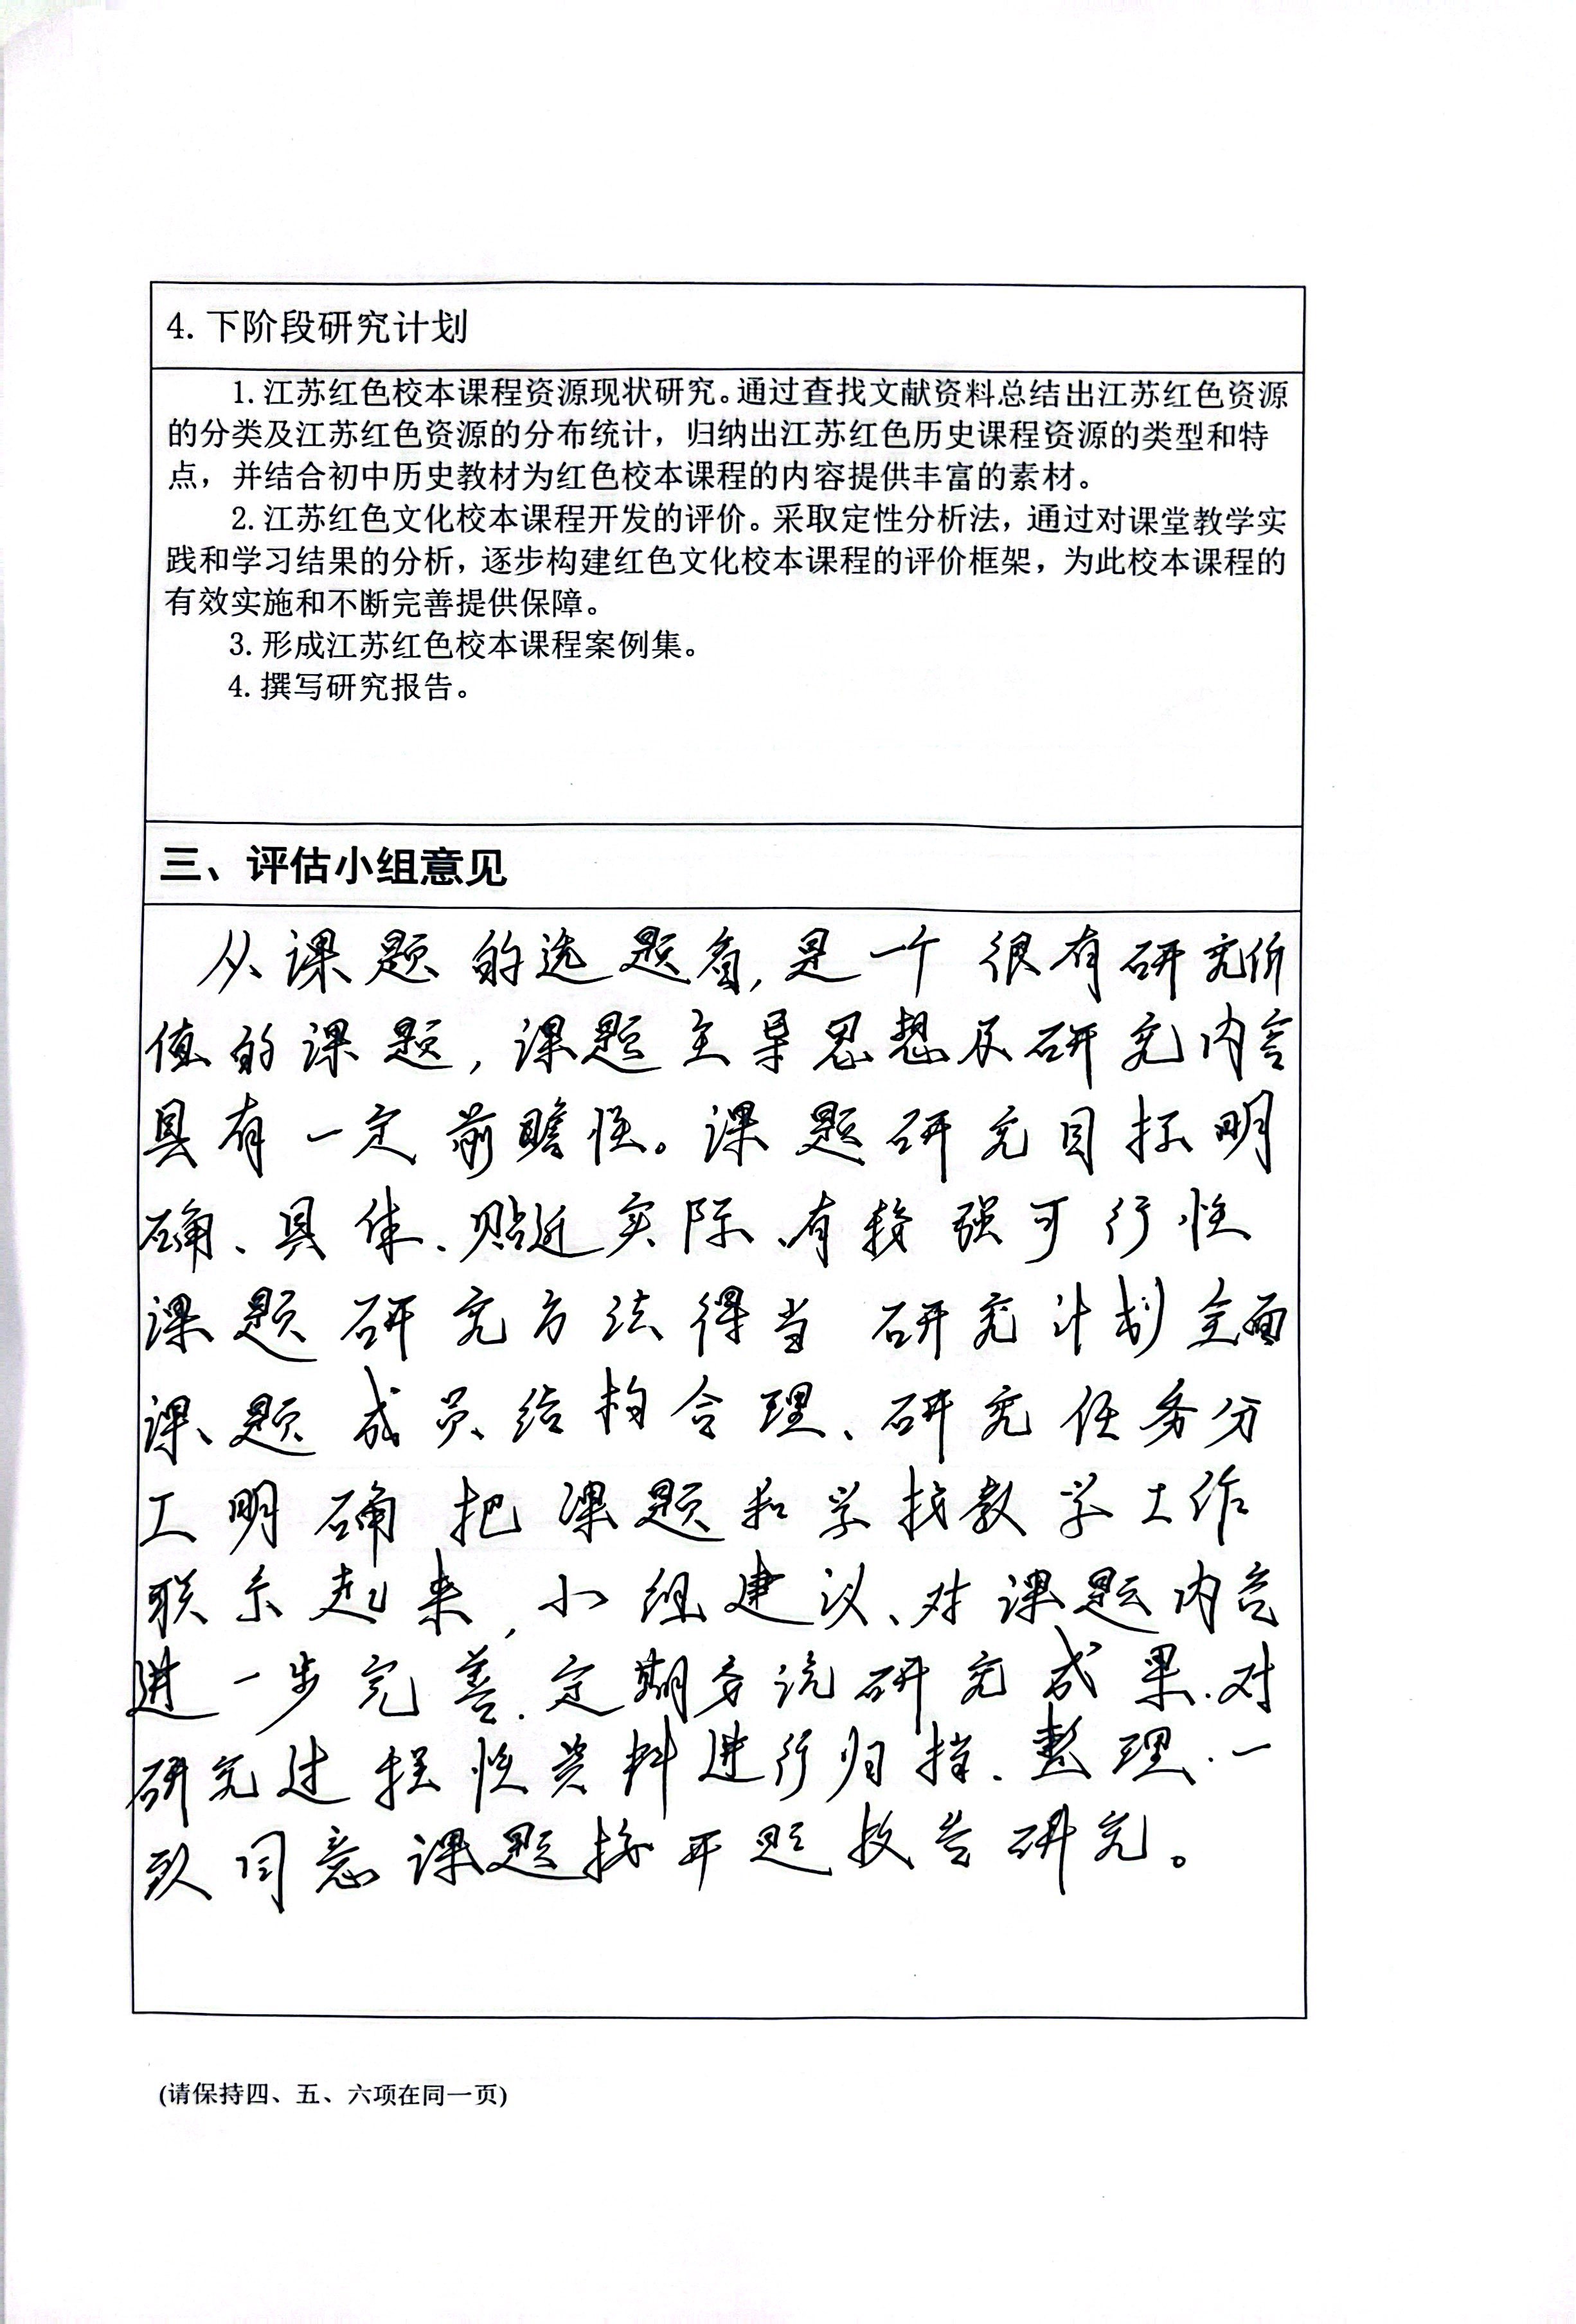 4. 下阶段研究计划
1. 江苏红色校本课程资源现状研究。通过查找文献资料总结出江苏红色资源
的分类及江苏红色资源的分布统计，归纳出江苏红色历史课程资源的类型和特
点，并结合初中历史教材为红色校本课程的内容提供丰富的素材。
2. 江苏红色文化校本课程开发的评价。采取定性分析法，通过对课堂教学实
践和学习结果的分析，逐步构建红色文化校本课程的评价框架，为此校本课程的
有效实施和不断完善提供保障。
3. 形成江苏红色校本课程案例集。
4. 撰写研究报告。
三、评估小组意见
从课题的选题看，是一个很有研究价
值的课题，课题主导思想及研究内容
具有一定前瞻性。课题研究目标明
确、具体、贴近实际、有较强可行性
课题研究方法得当 研究计划全面
课题成员结构合理、研究任务分
工明确 把课题和学校教学工作
联系起来，小组建议、对课题内容
进一步完善.定期 研究成果.对
研究过程性资料进行归档、整理.一
致同意课题按开题报告研究。
(请保持四、五、六项在同一页)